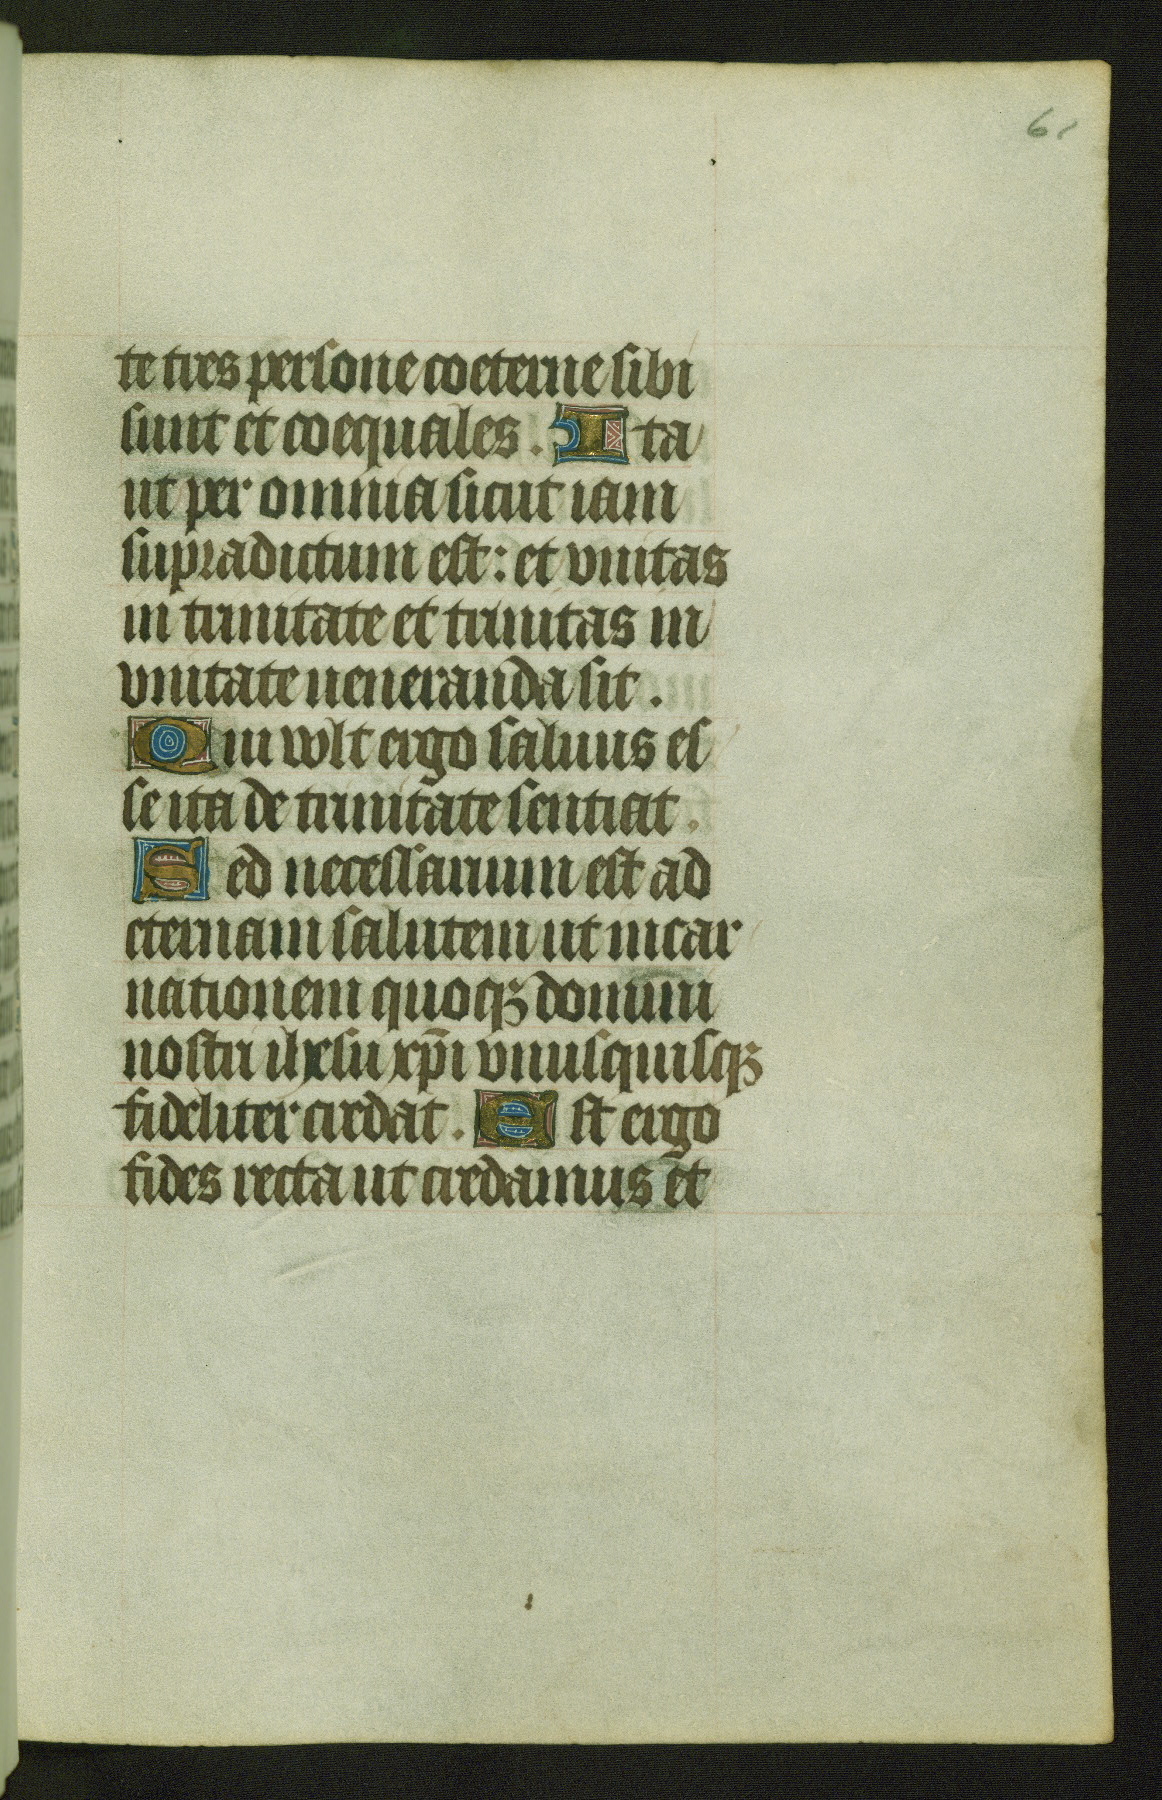 61
te tres persone coeterne sibi
sunt et coequales. Ita
ut per omnia sicut iam
supradictum est: et vnitas
in trinitate et trinitas in
vnitate ueneranda sit.
Qui wlt ergo saluus es
se ita de trinitate sentiat.
Sed necessarium est ad
eternam salutem ut incar
nationem quoqꝫ domini
nostri ihesu xp̄i vnusquisqꝫ
fideliter credat. Est ergo
fides recta ut credamus et